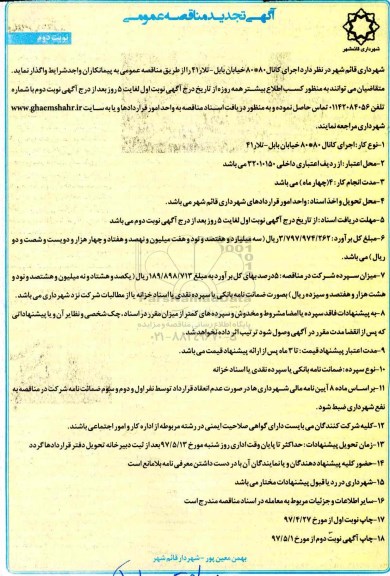 آگهی تجدید مناقصه عمومی
نوبت دوم
شهرداری قائمشهر
شهرداری قائم شهر در نظر دارد اجرای کانال 80*80 خیابان بابل-تلار 41 را از طریق مناقصه عمومی به پیمانکاران واجد شرایط واگذار نماید.
متقاضیان می توانند به منظور کسب اطلاع بیشتر همه روزه از تاریخ درج آگهی نوبت اول لغایت 5 روز بعد از درج آگهی نوبت دوم با شماره
تلفن 01142084056 تماس حاصل نموده و به منظور دریافت اسناد مناقصه به واحد امور قراردادها و یا به سایت www.ghaemshahr.ir
شهرداری مراجعه نمایند.
1-نوع کار: اجرای کانال 80*80 خیابان بابل-تلار 41
2-محل اعتبار: از ردیف اعتباری داخلی 3201015 می باشد
3-مدت انجام کار: 4(چهار ماه) می باشد
4-محل تحویل و اخذ اسناد: واحد امور قراردادهای شهرداری قائم شهر می باشد.
5-مهلت دریافت اسناد: از تاریخ درج آگهی نوبت اول لغایت 5 روز بعد از درج آگهی نوبت دوم می باشد
6-مبلغ کل برآورد: 3/797/974/262 ریال (سه میلیارد و هفتصد و نود و هفت میلیون و نهصد و هفتاد و چهار هزار و دویست و شصت و دو
ریال) می باشد.
7-میزان سپرده شرکت در مناقصه: 5درصد بهای کل برآورد به مبلغ 189/898/713 ریال (یکصد و هشتاد و نه میلیون و هشتصد و نود و
هشت هزار و هفتصد و سیزده ریال) بصورت ضمانت نامه بانکی یا سپرده نقدی یا اسناد خزانه یا از مطالبات شرکت نزد شهرداری می باشد.
8-به پیشنهادات فاقد سپرده یا امضا مشروط و مخدوش و سپرده های کمتر از میزان مقرر در اسناد، چک شخصی و نظایر آن و یا پیشنهاداتی
که پس از انقضا مدت مقرر در آگهی وصول شود ترتیب اثر داده نخواهد شد.
9-مدت اعتبار پیشنهاد قیمت: تا 3 ماه پس از ارائه پیشنهاد قیمت می باشد.
10-نوع سپرده: ضمانت نامه بانکی یا سپرده نقدی یا اسناد خزانه
11-بر اساس ماده 8 آیین نامه مالی شهرداری ها در صورت عدم انعقاد قرارداد توسط نفر اول و دوم و سوم ضمانت نامه شرکت در مناقصه به
نفع شهرداری ضبط شود.
12-کلیه شرکت کنندگان می بایست دارای گواهی صلاحیت ایمنی در رشته مربوطه از اداره کار و امور اجتماعی باشند.
13-زمان تحویل پیشنهادات: حداکثر تا پایان وقت اداری روز شنبه مورخ 97/5/13 بعد از ثبت دبیرخانه تحویل دفتر قراردادها گردد
14-حضور کلیه پیشنهاد دهندگان و یا نمایندگان آن با در دست داشتن معرفی نامه بلامانع است
15-شهرداری در رد یا قبول پیشنهادات مختار می باشد
16-سایر اطلاعات و جزئیات مربوط به معامله در اسناد مناقصه مندرج است
17-چاپ نوبت اول از مورخ 97/4/27
18-چاپ آگهی نوبت دوم از مورخ 97/5/1
بهمن معین پور-شهردار قائم شهر